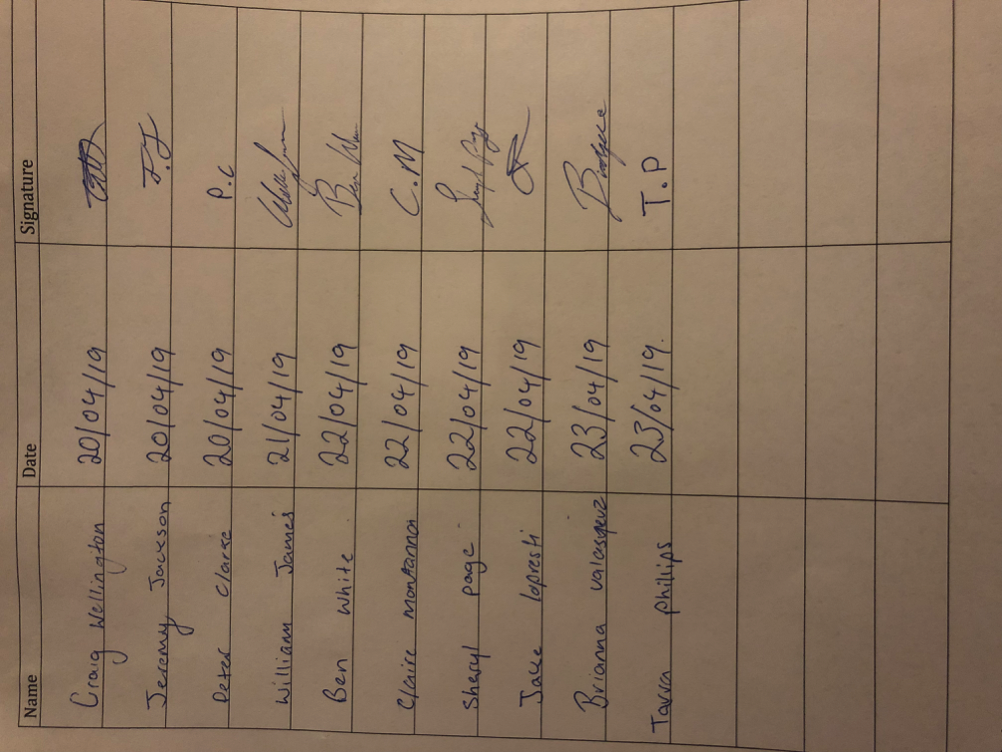 Name Date Signature
Craig Wellington 20/04/19
Jeremy Jackson 20/04/19 J.J
Peter Clarke 20/04/19 P.C
William James 21/04/19
Ben White 22/04/19 Ben
Claire montanna 22/04/19 C.M
Sheryl page 22/04/19
Jake lopresti 22/04/19
Brianna 23/04/19
Phillips 23/04/19. T.P